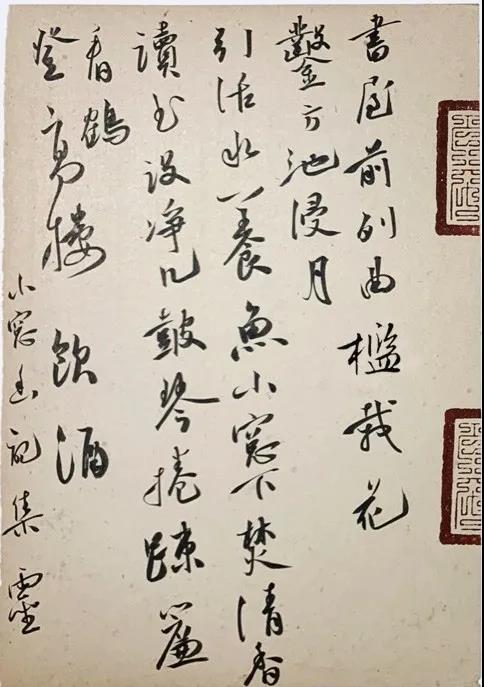 書屋前列曲檻栽花
鑿方池浸月
引活水養魚小窓下焚清香
讀書設净几鼓琴捲疎簾
看鶴
登高樓飲酒
小窓幽記集靈